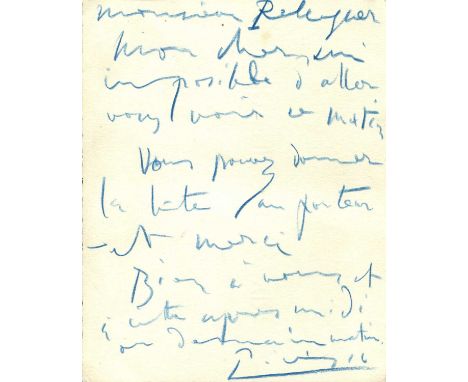 Monsieur Pelequer
Mon cher ami
imposible d'aller
vous voir ce matin
Vous pouvez donner
la boite au porteur
et merci
Bien à vous et
à cette apres midi
ou demain matin.
Picasso